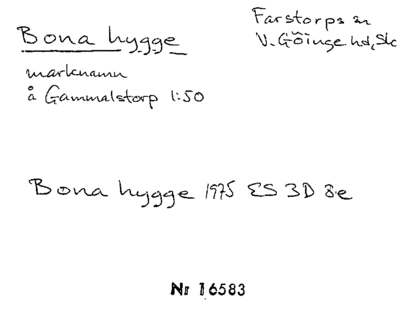 Bona hygge
Farstorps sn
V. Göinge hd, Sk
marknamn
å Gammalstorp 1:50
Bona hygge 1975 ES 3D 8e
Nr 16583